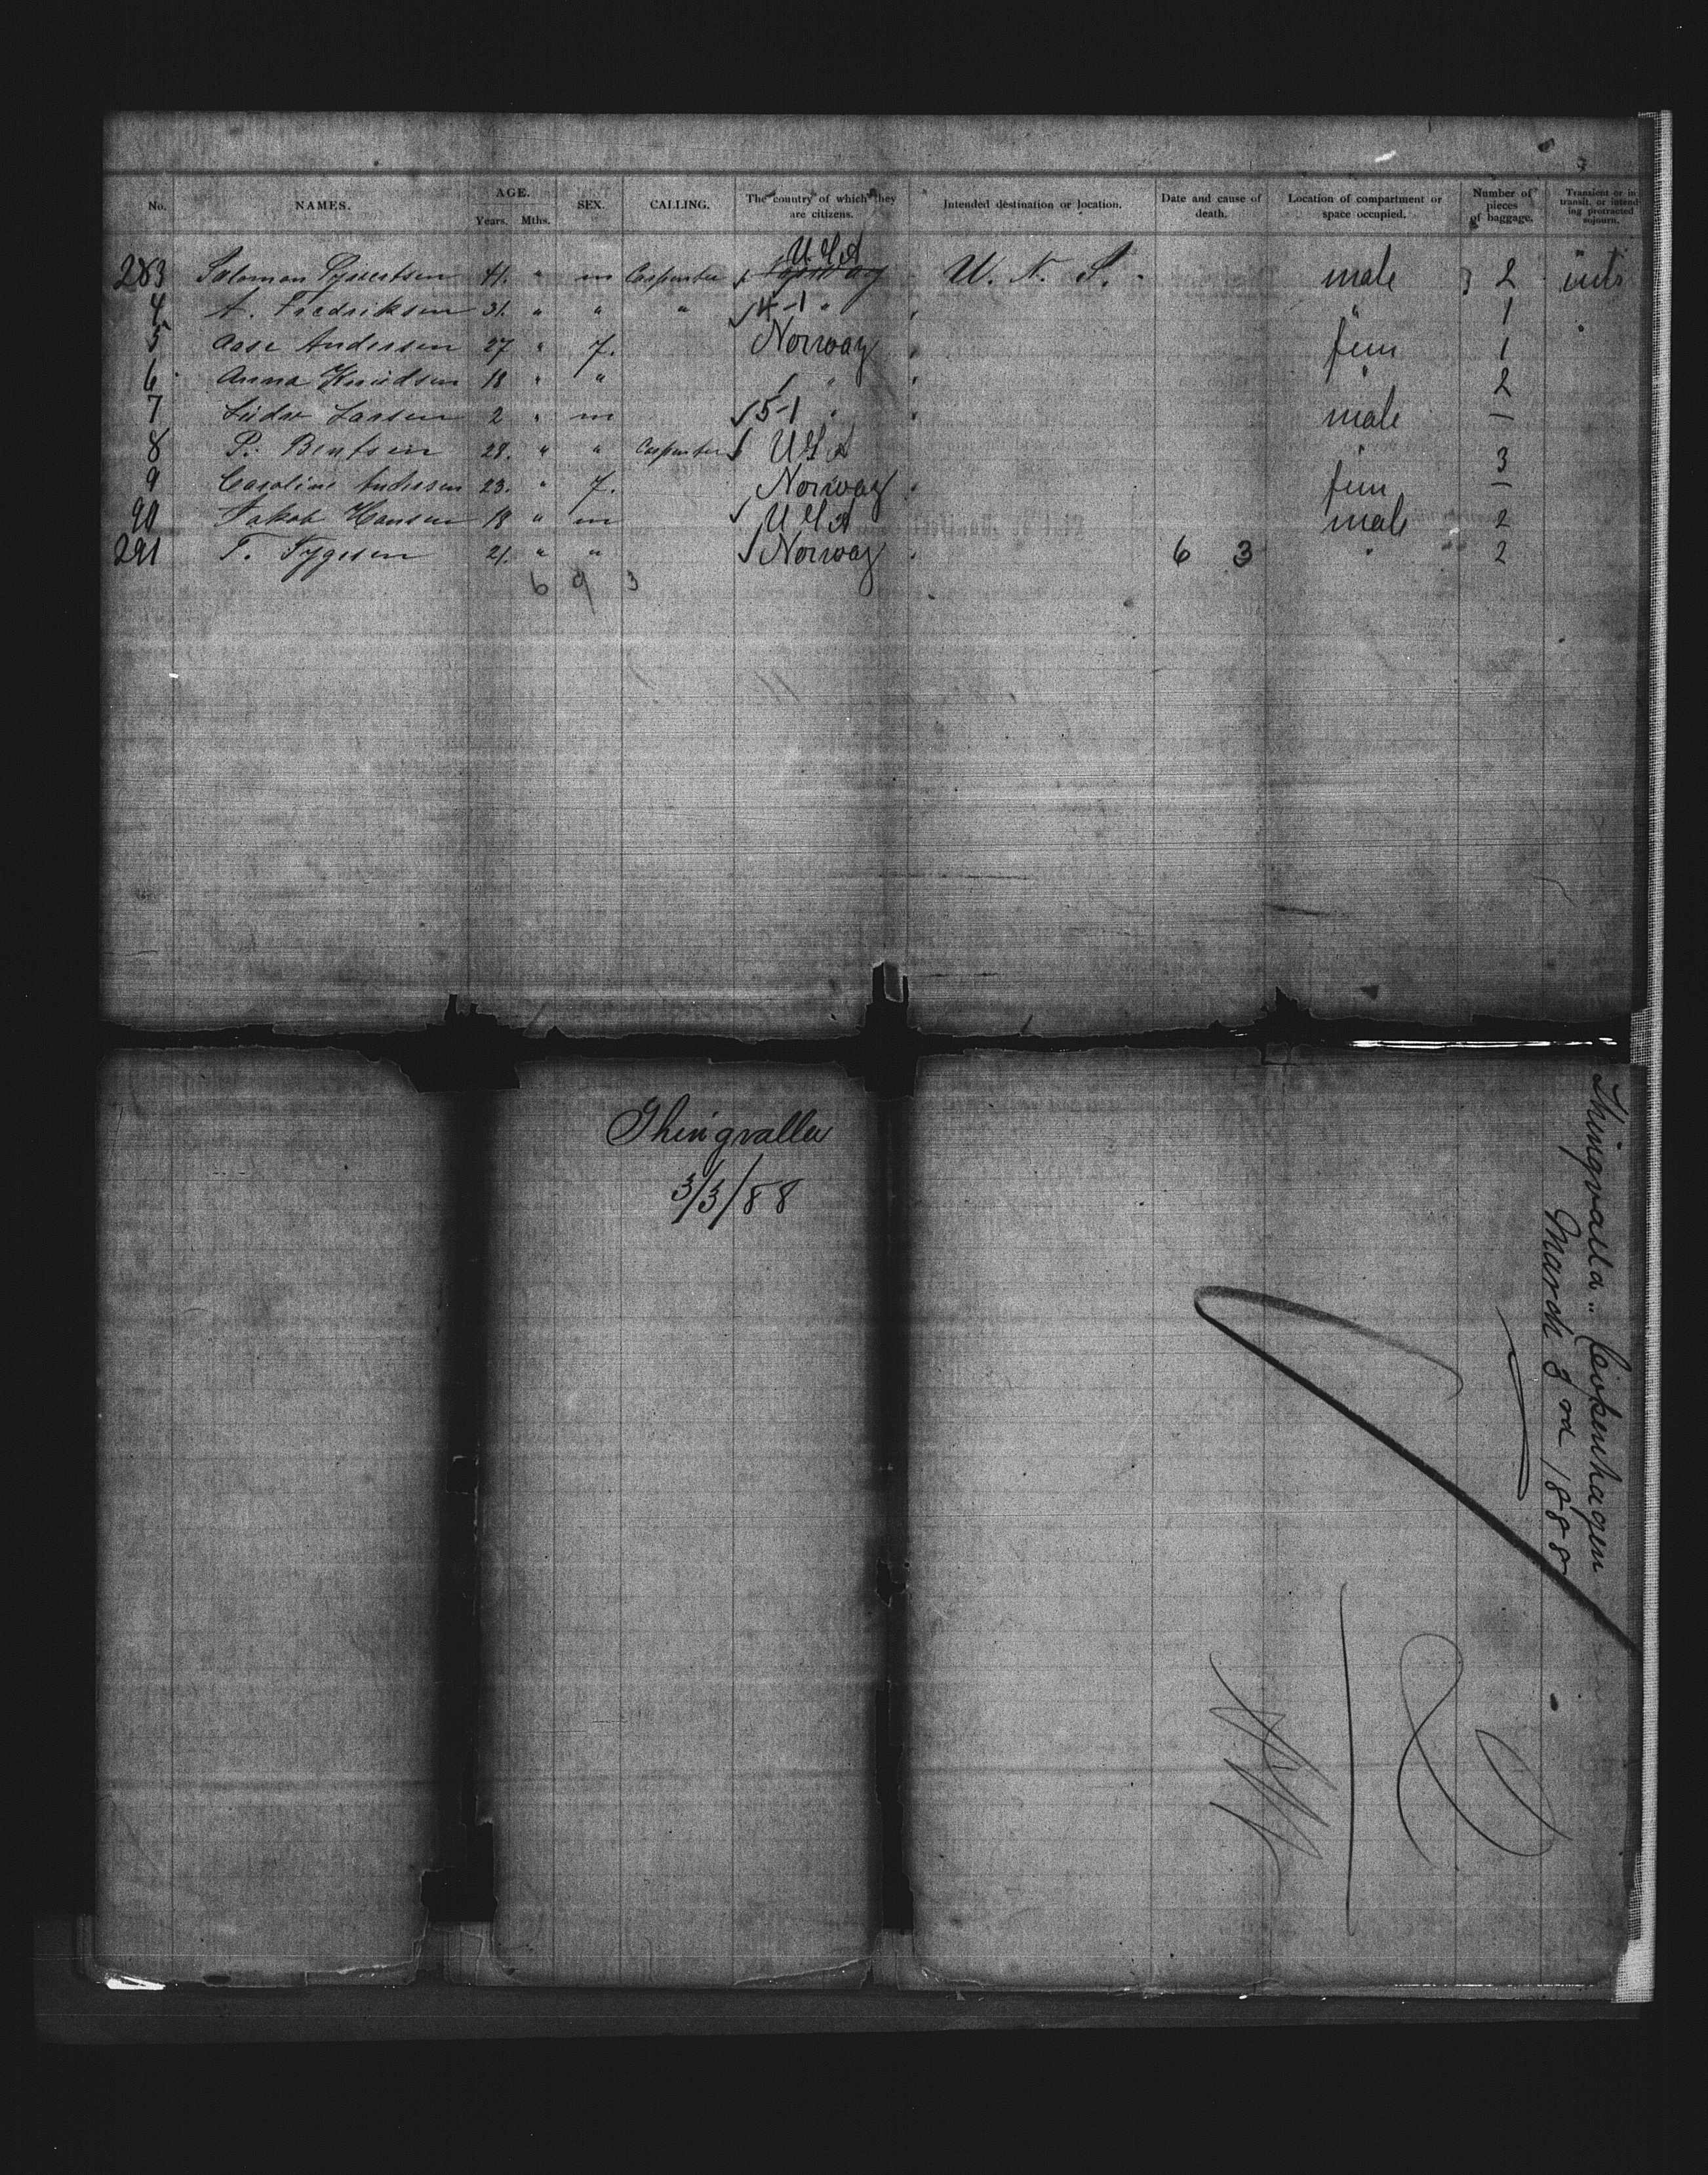 No. NAMES. AGE. Years. Mths. SEX. CALLING. The country of which they are citizens. Intended destination or location. Date and cause of death. Location of compartment or space occupied. Number of pieces of baggage. Transient or in transit, or intending protracted sojourn.
283 Salomon 41. " m Carpenter Norway U.S.A U. N. S. male 2
4 A. Fredriksen 31. " " " 4-1 " " " 1
5 Aase Andersen 27 " f. Norway " fem 1
6 Anna Knudsen 18 " " " " " 2
7 Larsen 2 " m 5-1 " " male —
8 P. Bentsen 28. " " Carpenter U S A " 3
9 Caroline Andersen 23. " f. Norway " fem —
90 Jakob Hansen 18 " m U S A male 2
291 T. Tygesen 21. " " Norway " 6 3 " 2
6 9 3
Thingvalla
3/3/88
Thingvalla" Copenhagen
March 3rd 1888